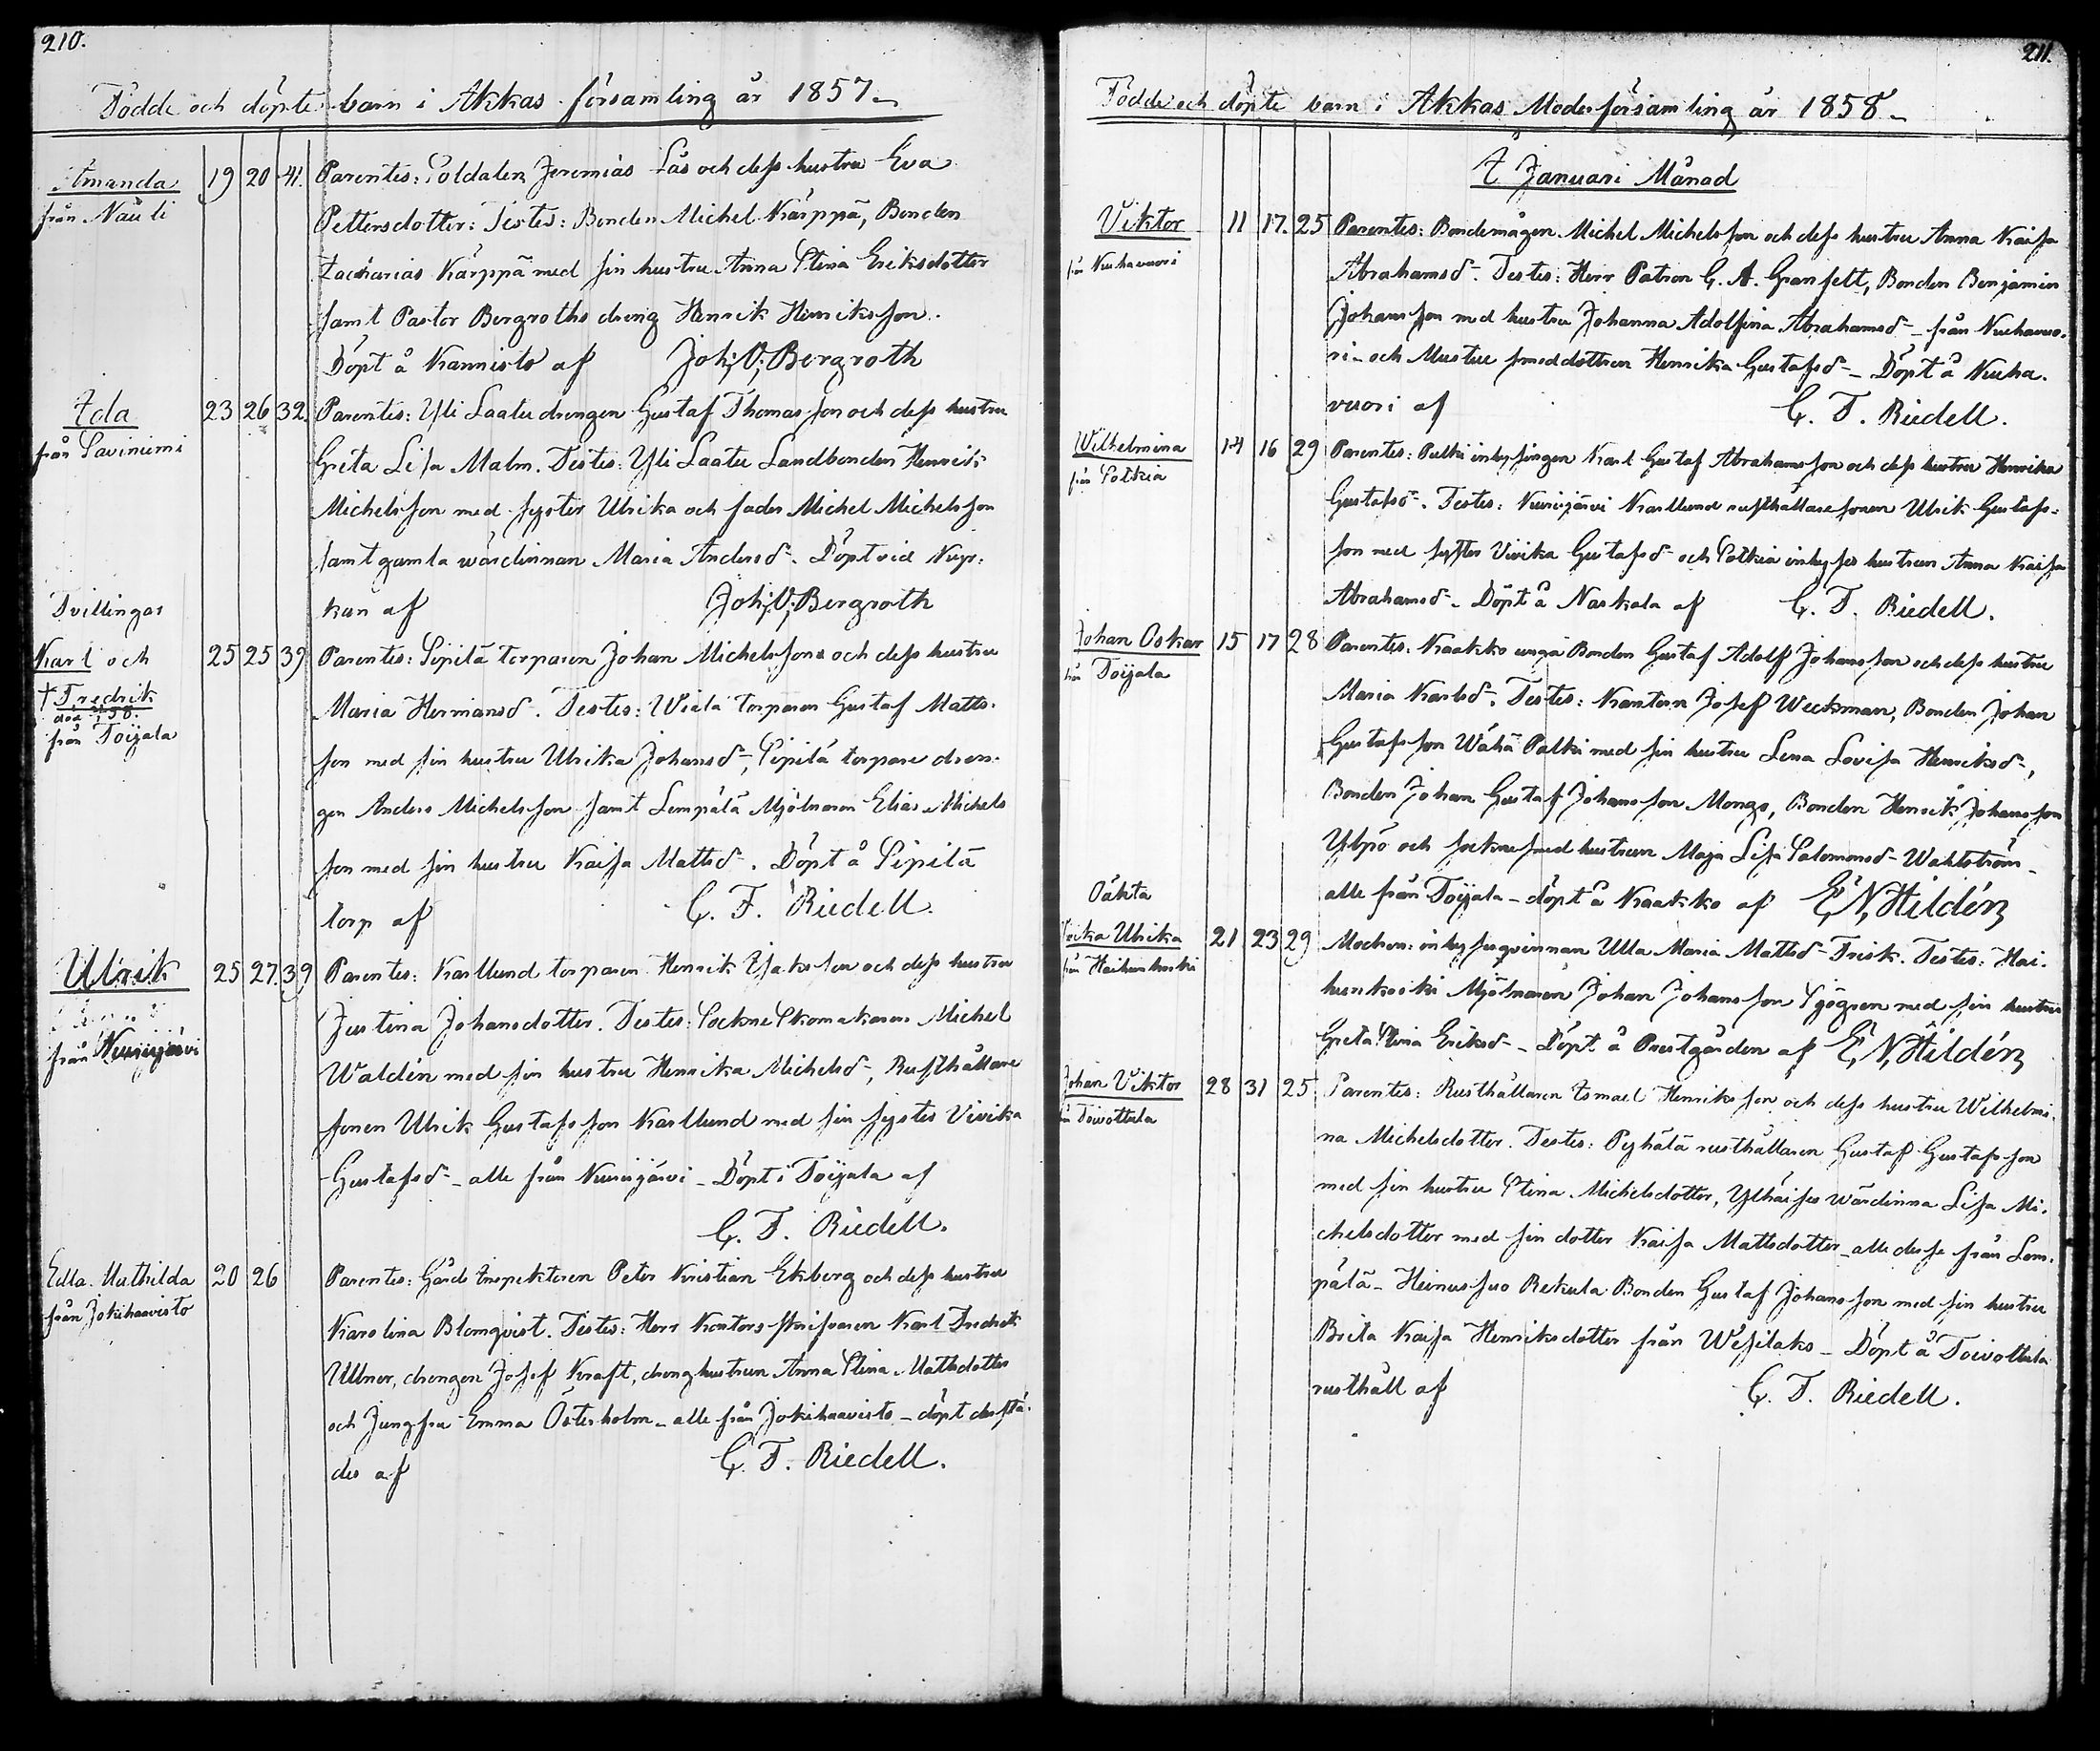 210.
Födde och döpte barn i Akkas församling år 1857.
Amanda 19 20 41. Parentes: Soldaten Jeremias Lås och dess hustru Eva
från Nauli Pettersdotter: Testes: Bonden Michel Kärppä, Bonden
Zacharias Kärppä med sin hustru Anna Stina Eriksdotter
samt Pastor Bergroths dreng Henrik Henriksson.
Döpt å Kannisto af Joh; O; Bergroth
Ida 23 26 32. Parentes: Yli Laatu drengen Gustaf Thomasson och dess hustru
från Saviniemi Greta Lisa Malm. Testes: Yli Laatu Landbonden Henrik
Michelsson med syster Ulrika och fader Michel Michelsson
samt gamla wärdinnan Maria Andersd. Döpt vid Kyr-
kan af Joh; O; Bergroth
Tvillingar
Karl och 25 25 39 Parentes: Sipilä torparen Johan Michelsson och dess hustru
† Fredrik Maria Hermansd. Testes: Wiala torparen Gustaf Matts-
död 58.
från Toijala son med sin hustru Ulrika Johansd-, Sipilä torpare dren-
gen Anders Michelsson samt Lempälä Mjölnaren Elias Michels
son med sin hustru Kaisa Mattsd-. Döpt å Sipilä
torp af C. F. Riedell.
Ulrik 25 27. 39 Parentes: Karllund torparen Henrik Isaksson och dess hustru
från Kurisjärvi Justina Johansdotter. Testes: Sockne Skomakaren Michel
Waldén med sin hustru Henrika Michelsd-, Rusthållare
sonen Ulrik Gustafsson Karllund med sin syster Vivika
Gustafsd- alle från Kurisjärvi - Döpt i Toijala af
C. F. Riedell.
Edla Mathilda 20 26 Parentes: Gårds Inspektoren Peter Kristian Ekberg och dess hustru
från Jokihaavisto Karolina Blomqvist. Testes: Herr Kontorsskrifvaren Karl Fredrik
Ullner, drengen Josef Kraft, dreng hustrun Anna Stina Mattsdotter
och Jungfru Emma Österholm - alle från Jokihaavisto - döpt derstä-
des af C. F. Riedell.
211.
Födde och döpte barn i Akkas Moderförsamling år 1858
I Januari Månad
Viktor 11 17. 25 Parentes: Bondemågen Michel Michelsson och dess hustru Anna Kaisa
från Nuhavuori Abrahamsd-. Testes: Herr Patron G. A. Granfelt, Bonden Benjamin
Johansson med hustru Johanna Adolfina Abrahamsd - från Nuhavuo-
ri - och Mustue smeddottren Henrika Gustafsd - Döpt å Nuha-
vuori af C. F. Riedell.
Wilhelmina 14 16 29 Parentes: Pulki inhysingen Karl Gustaf Abrahamsson och dess hustru Henrika
från Potkia Gustafsd-. Testes: Kurisjärvi Karllund rusthållaresonen Ulrik Gustafs-
son med syster Vivika Gustafsd- och Potkia inhyses hustrun Anna Kaisa
Abrahamsd - Döpt å Naskala af C. F. Riedell.
Johan Oskar 15 17 28 Parentes: Kaakko unga Bonden Gustaf Adolf Johansson och dess hustru
från Toijala Maria Karlsd-. Testes: Kantorn Josef Weckman, Bonden Johan
Gustafsson Wähä Palki med sin hustru Lena Lovisa Henriksd-,
Bonden Johan Gustaf Johansson Mongo, Bonden Henrik Johansson
Ylöpö och socknesmed hustrun Maja Lisa Salomonsd - Wahlström -
alle från Toijala - döpt å Kaakko af E, N, Hildén
Oäkta
Ulrika 21 23 29 Modren: inhysesqvinnan Ulla Maria Mattsd - Frisk. Testes: Hai-
från Haihunkoski hunkoski Mjölnaren Johan Johansson Sjögren med sin hustru
Greta Stina Eriksd - Döpt å Prestgården af E, N, Hildén
Johan Viktor 28 31 25 Parentes: Rusthållaren Ismael Henriksson och dess hustru Wilhelmi-
Toivottula na Michelsdotter. Testes: Pyhältä rusthållaren Gustaf Gustafsson
med sin hustru Stina Michelsdotter, Ylhäises wärdinna Lisa Mi-
chelsdotter med sin dotter Kaisa Mattsdotter - alle desse från Lem-
pälä - Heinusuo Rekula Bonden Gustaf Johansson med sin hustru
Brita Kaisa Henriksdotter från Wesilaks - Döpt å Toivottula
rusthåll af C. F. Riedell.